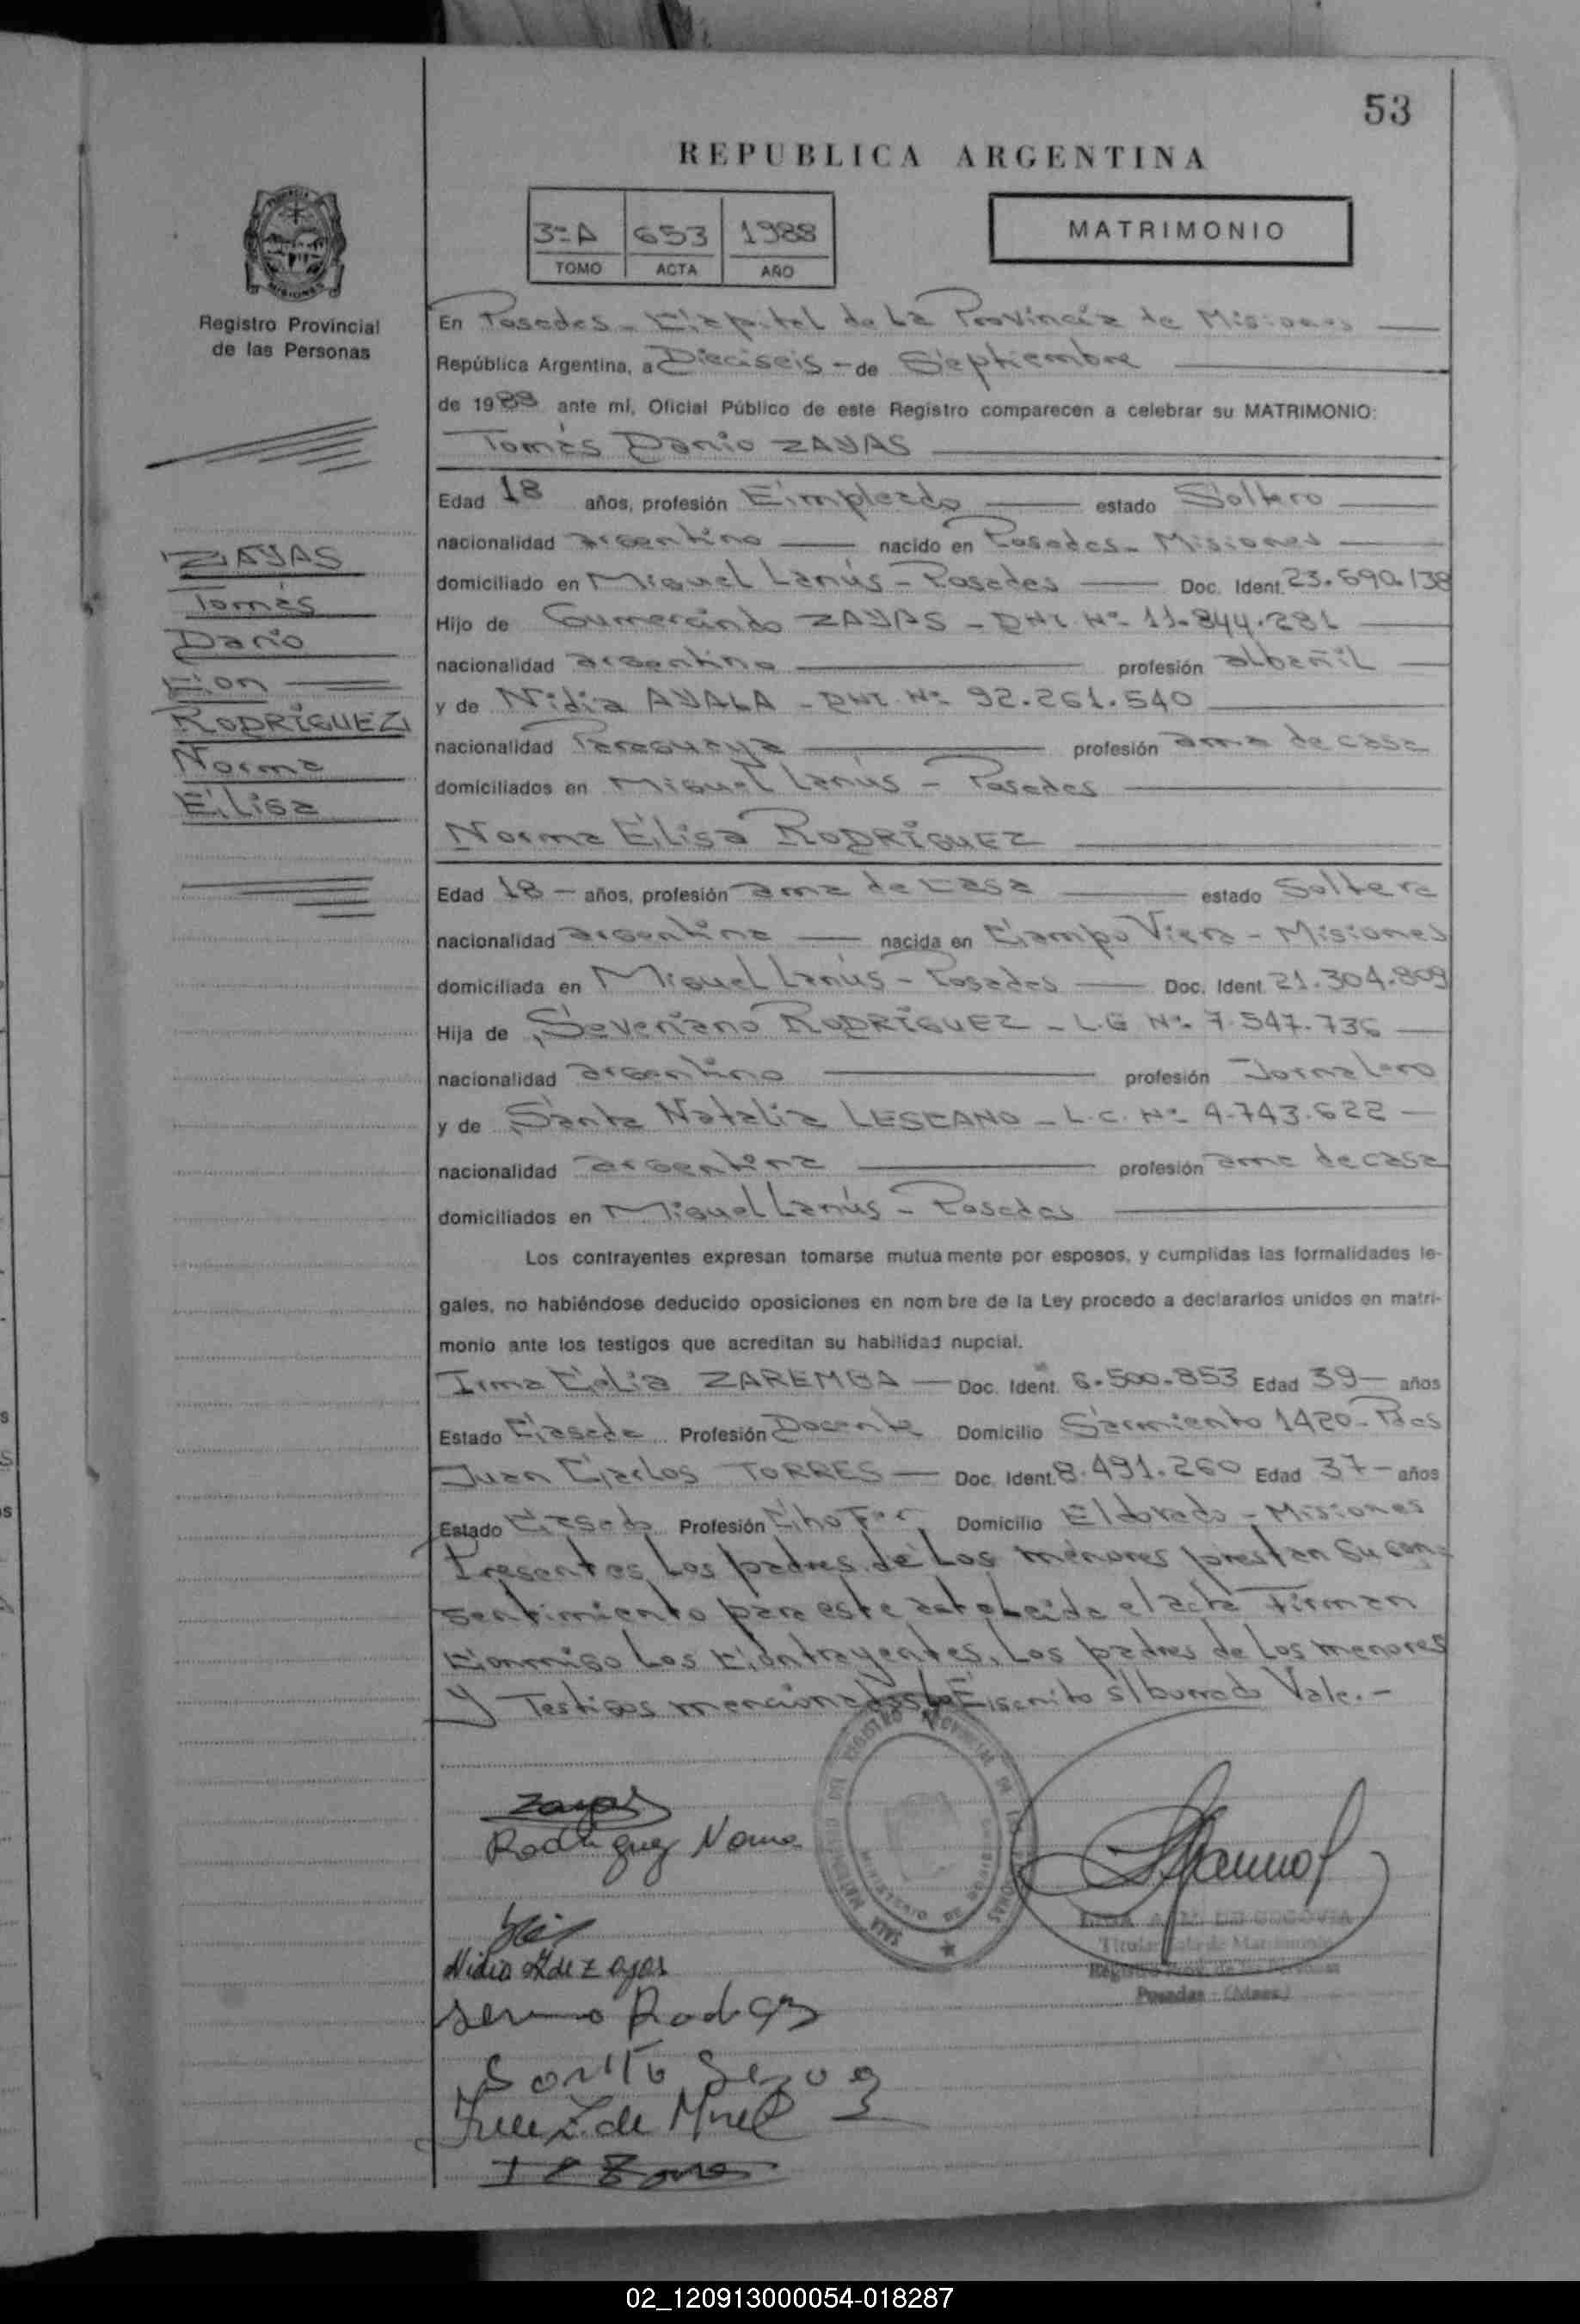 53
REPUBLICA ARGENTINA
3º A 653 1988
TOMO ACTA AÑO
MATRIMONIO
Registro Provincial
de las Personas
ZAYAS
Tomás
Darío
con
RODRÍGUEZ
Norma
Elisa
En Posadas - Capital de la Provincia de Misiones
República Argentina, a Dieciseis - de Septiembre
de 1988 ante mí, Oficial Público de este Registro comparecen a celebrar su MATRIMONIO:
Tomás Darío ZAYAS
Edad 18 años, profesión Empleado estado Soltero
nacionalidad argentino nacido en Posadas - Misiones
domiciliado en Miguel Lanús - Posadas Doc. Ident. 23.690.138
Hijo de Gumercindo ZAYAS - DNI. Nº 11.844.281
nacionalidad argentino profesión albañil
y de Nidia AYALA - DNI. Nº 92.261.540
nacionalidad Paraguaya profesión ama de casa
domiciliados en Miguel Lanús - Posadas
Norma Elisa RODRÍGUEZ
Edad 18 - años, profesión ama de casa estado Soltera
nacionalidad argentina nacida en Campo Viera - Misiones
domiciliada en Miguel Lanús - Posadas Doc. Ident. 21.304.809
Hija de Severiano RODRÍGUEZ - L.E Nº 7.547.736
nacionalidad argentino profesión Jornalero
y de Santa Natalia LESCANO - L.C. Nº 4.743.622
nacionalidad argentina profesión ama de casa
domiciliados en Miguel Lanús - Posadas
Los contrayentes expresan tomarse mutuamente por esposos, y cumplidas las formalidades le-
gales, no habiéndose deducido oposiciones en nombre de la Ley procedo a declararlos unidos en matri-
monio ante los testigos que acreditan su habilidad nupcial.
Irma Celia ZAREMBA Doc. Ident. 6.500.853 Edad 39 años
Estado Casada Profesión Docente Domicilio Sarmiento 1420 - Pdas
Juan Carlos TORRES Doc. Ident. 8.491.260 Edad 37 - años
Estado Casado Profesión Chofer Domicilio Eldorado - Misiones
Presentes los padres de los menores prestan su con-
sentimiento para este acto leída el acta Firman
Conmigo los Contrayentes, los padres de los menores
y Testigos mencionados Escrito s/borrado Vale. -
Zayas
Rodriguez Norma
Nidia A de Zayas
Titular Sala de Matrimonio
Registro Prov. de las Personas
Posadas - (Mnes.)
02_120913000054-018287